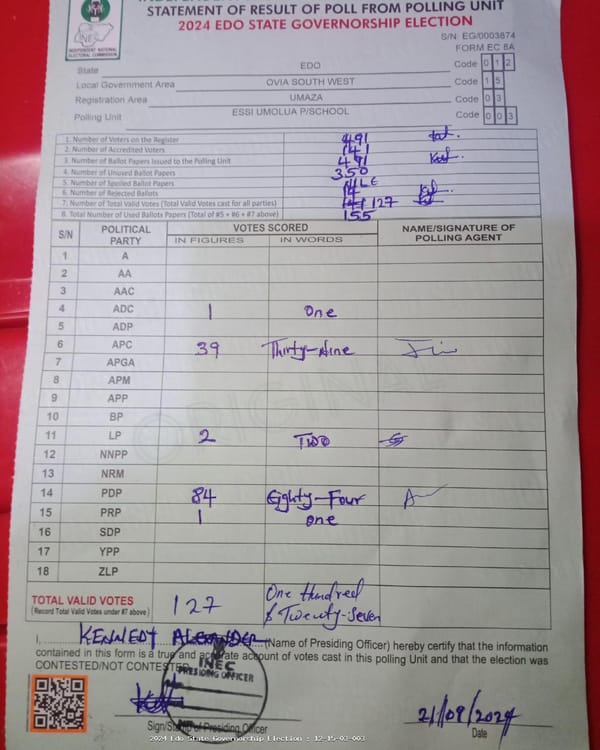 STATEMENT OF RESULT OF POLL FROM POLLING UNIT
2024 EDO STATE GOVERNORSHIP ELECTION
INDEPENDENT NATIONAL ELECTORAL COMMISSION
S/N: EG/0003674
FORM EC 8A
State EDO Code 0 1 2
Local Government Area OVIA SOUTH WEST Code 1 5
Registration Area UMAZA Code 0 3
Polling Unit ESSI UMOLUA P/SCHOOL Code 0 0 3
1. Number of Voters on the Register 491
2. Number of Accredited Voters 141
3. Number of Ballot Papers Issued to the Polling Unit 491
4. Number of Unused Ballot Papers 350
5. Number of Spoiled Ballot Papers
6. Number of Rejected Ballots 14
7. Number of Total Valid Votes (Total Valid Votes cast for all parties) 127
8. Total Number of Used Ballots Papers (Total of #5 + #6 + #7 above) 155
S/N POLITICAL PARTY VOTES SCORED NAME/SIGNATURE OF POLLING AGENT
IN FIGURES IN WORDS
1 A
2 AA
3 AAC
4 ADC 1 One
5 ADP
6 APC 39 Thirty-Nine
7 APGA
8 APM
9 APP
10 BP
11 LP 2 TWO
12 NNPP
13 NRM
14 PDP 84 Eighty-Four
15 PRP 1 one
16 SDP
17 YPP
18 ZLP
ORIGINAL
TOTAL VALID VOTES 127 One Hundred
(Record Total Valid Votes under #7 above) & Twenty-Seven
I, KENNEDY ALEXANDER (Name of Presiding Officer) hereby certify that the information
contained in this form is a true and accurate account of votes cast in this polling Unit and that the election was
CONTESTED/NOT CONTESTED
INEC
PRESIDING OFFICER
21/09/2024
Sign/Stamp of Presiding Officer Date
2024 Edo State Governorship Election : 12-15-03-003